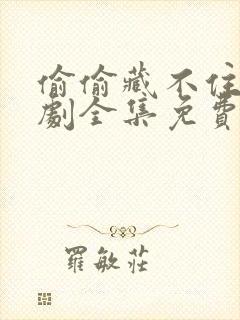 偷偷藏不住
劇全集免費
羅敏莊